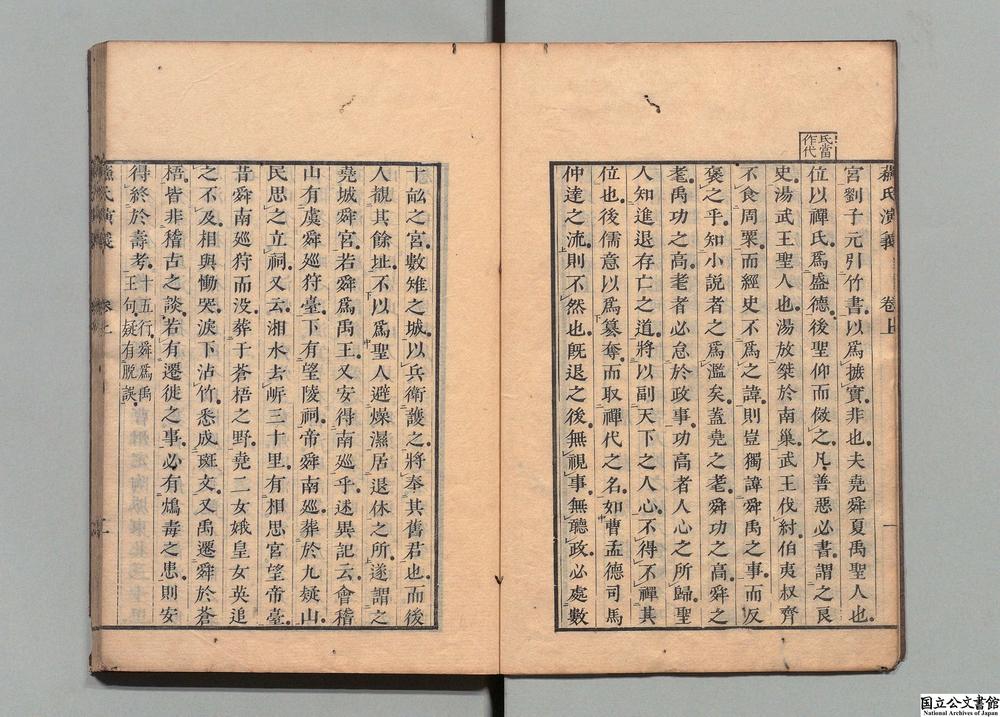 氏當
作代
蘇氏演義 卷上 一
宮劉子元引竹書以爲摭實非也夫堯舜夏禹聖人也
位以禪氏爲盛德後聖仰而倣之凡善惡必書謂之良
史湯武王聖人也湯放桀於南巢武王伐紂伯夷叔齊
不食周粟而經史不爲之諱則豈獨諱舜禹之事而反
褒之乎知小說者之爲濫矣蓋堯之老舜功之高舜之
老禹功之高老者必怠於政事功高者人心之所歸聖
人知進退存亡之道將以副天下之人心不得不禪其
位也後儒意以爲篡奪而取禪代之名如曹孟德司馬
仲達之流則不然也旣退之後無視事無聽政必處數
十畝之宮數雉之城以兵衛護之將奉其舊君也而後
人觀其餘址不以爲聖人避燥濕居退休之所遂謂之
堯城舜宮若舜爲禹王又安得南廵乎述異記云會稽
山有虞舜廵狩臺下有望陵祠帝舜南廵葬於九疑山
民思之立祠又云湘水去岍三十里有相思宮望帝臺
昔舜南廵狩而没葬于蒼梧之野堯二女娥皇女英追
之不及相與慟哭淚下沾竹悉成斑文又禹遷舜於蒼
梧皆非稽古之談若有遷徙之事必有鴆毒之患則安
得終於壽考十五行舜爲禹
王句疑有脱誤
蘇氏演義 卷上